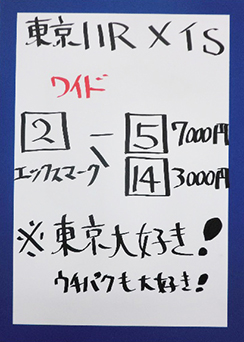 東京11R メイS
ワイド
2 - 5 7000円
エックスマーク 14 3000円
※東京大好き!
ウチパクも大好き!